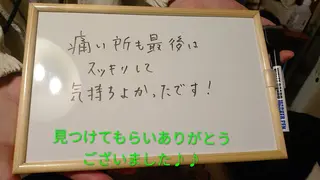 痛い所も最後は
スッキリして
気持ちよかったです!
見つけてもらいありがとう
ございました♪♪